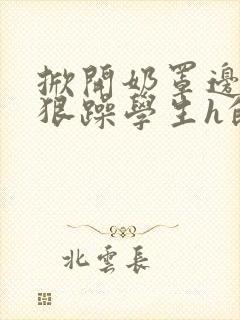 掀開奶罩邊
狠躁學生h
北雲長